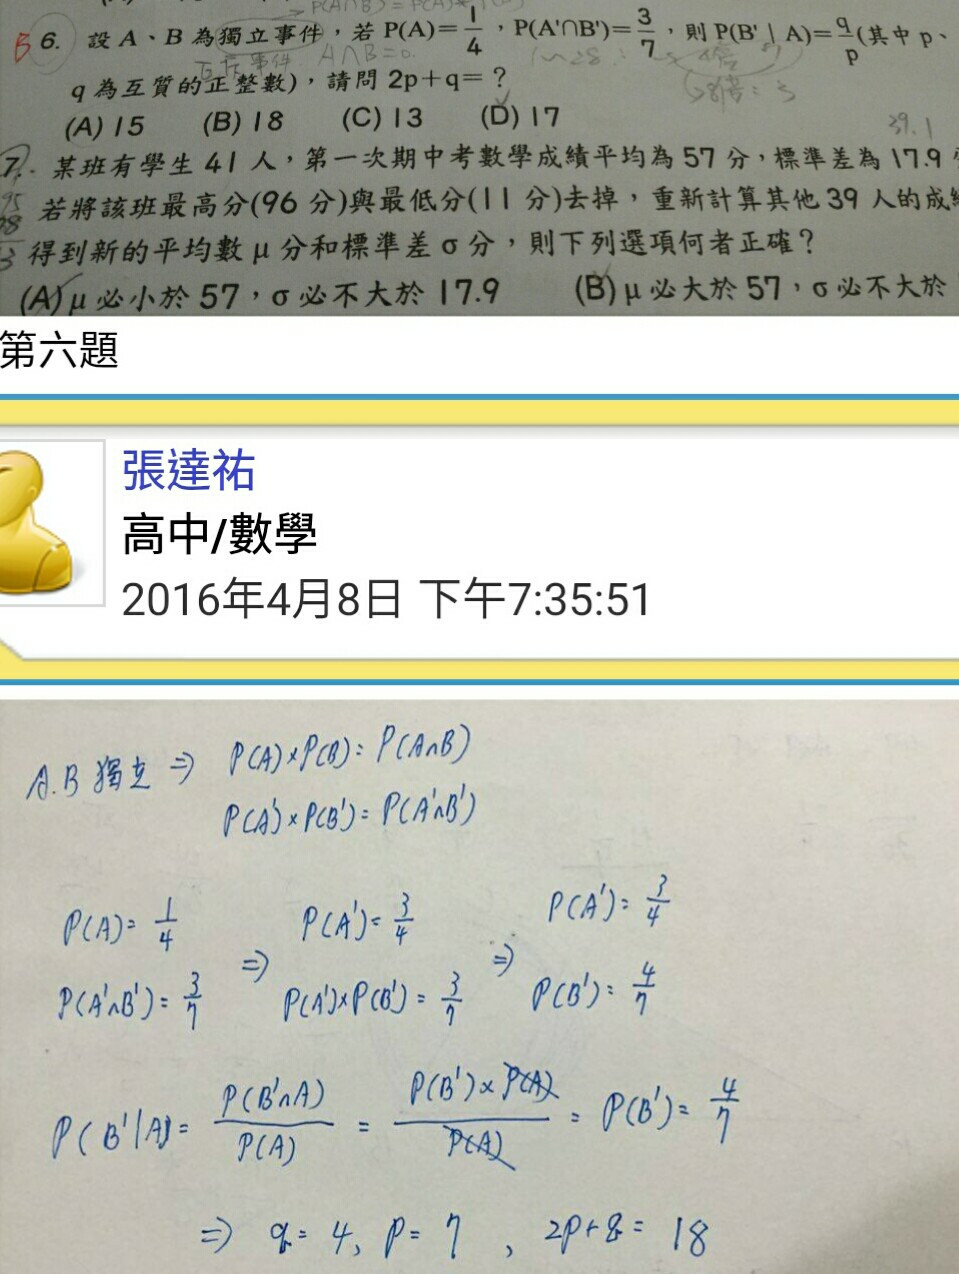 B 6. 設 A、B 為獨立事件，若 P(A)=1/4，P(A'∩B')=3/7，則 P(B'|A)=q/p(其中 p、
互斥事件 A∩B=0.
q 為互質的正整數)，請問 2p+q=？
(A) 15 (B) 18 (C) 13 (D) 17
39.1
7. 某班有學生 41 人，第一次期中考數學成績平均為 57 分，標準差為 17.9
若將該班最高分(96 分)與最低分(11 分)去掉，重新計算其他 39 人的成
得到新的平均數 μ 分和標準差 σ 分，則下列選項何者正確？
(A) μ 必小於 57，σ 必不大於 17.9 (B) μ 必大於 57，σ 必不大於
第六題
張達祐
高中/數學
2016年4月8日 下午7:35:51
A.B 獨立 ⇒ P(A)×P(B)=P(A∩B)
P(A')×P(B')=P(A'∩B')
P(A)=1/4 ⇒ P(A')=3/4 ⇒ P(A')=3/4
P(A'∩B')=3/7 P(A')×P(B')=3/7 P(B')=4/7
P(B'|A)=P(B'∩A)/P(A)=P(B')×P(A)/P(A)=P(B')=4/7
⇒ q=4, p=7, 2p+q=18